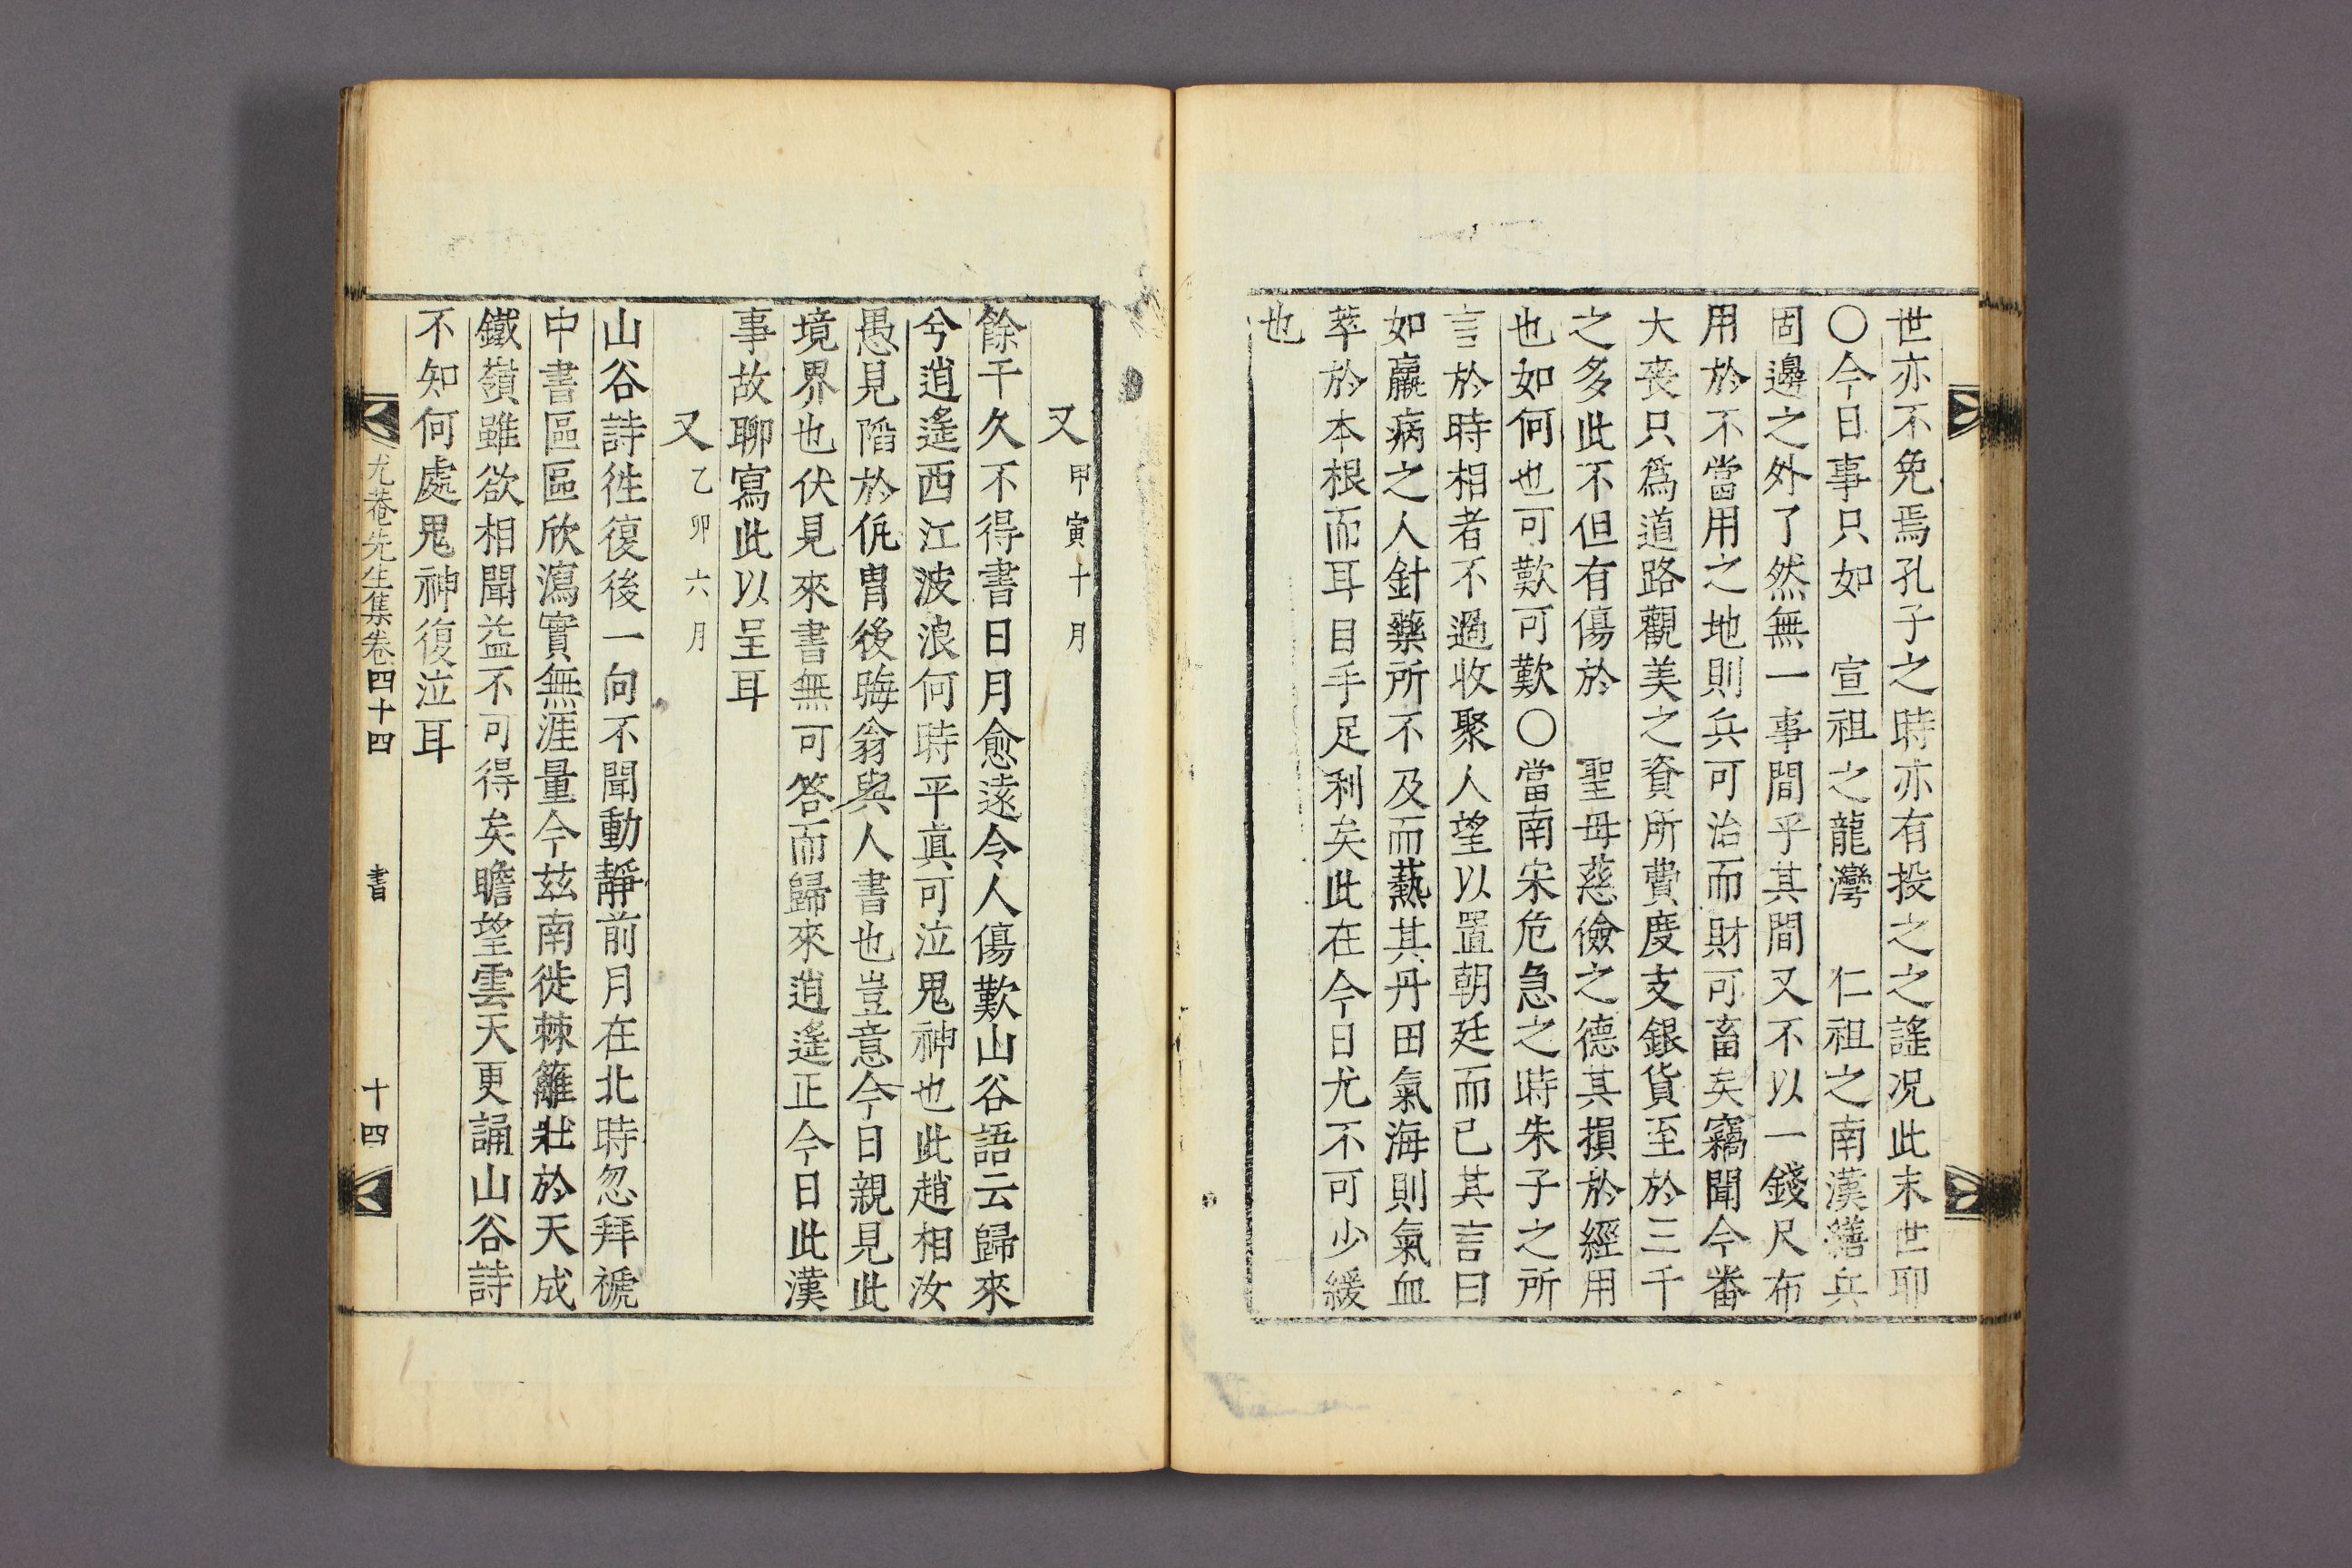 世亦不免焉孔子之時亦有投之之謠况此末世耶
○今日事只如 宣祖之龍灣 仁祖之南漢繕兵
固邊之外了然無一事間乎其間又不以一錢尺布
用於不當用之地則兵可治而財可畜矣竊聞今番
大喪只爲道路觀美之資所費度支銀貨至於三千
之多此不但有傷於 聖母慈儉之德其損於經用
也如何也可歎可歎○當南宋危急之時朱子之所
言於時相者不過收聚人望以置朝廷而已其言曰
如羸病之人針藥所不及而爇其丹田氣海則氣血
萃於本根而耳目手足利矣此在今日尤不可少緩
也
又甲寅十月
餘干久不得書日月愈遠令人傷歎山谷語云歸來
兮逍遙西江波浪何時平眞可泣鬼神也此趙相汝
愚見陷於侂胄後晦翁與人書也豈意今日親見此
境界也伏見來書無可答而歸來逍遙正今日此漢
事故聊寫此以呈耳
又乙卯六月
山谷詩徃復後一向不聞動靜前月在北時忽拜褫
中書區區欣瀉實無涯量今玆南徙棘籬壯於天成
鐵嶺雖欲相聞益不可得矣瞻望雲天更誦山谷詩
不知何處鬼神復泣耳
尤菴先生集卷四十四 書 十四